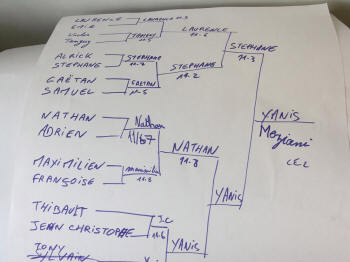 LAURENCE
LAURENCE
11.6
TANGUY
Tanguy
STEPHANE
11.3
ALRICK
STEPHANE
STEPHANE
STEPHANE
11.2
GAËTAN
SAMUEL
GAETAN
11.5
NATHAN
ADRIEN
Nathan
11/67
NATHAN
11.8
MAXIMILIEN
FRANÇOISE
11.8
YANIS
Meziani
YANIS
THIBAULT
JEAN CHRISTOPHE
J.C
11.6
YANIS
TONY
SYLVAIN